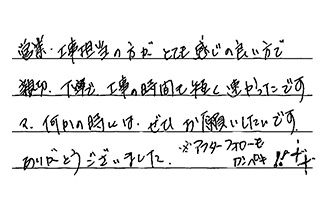 営業・工事担当の方がとても感じの良い方で
親切、丁寧で、工事の時間も短く速かったです
又、何かの時には、ぜひお願いしたいです。
ありがとうございました。 ※アフターフォローもカンペキ!!